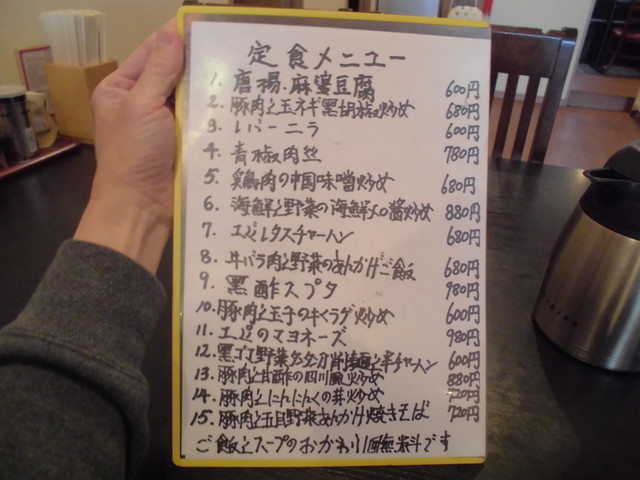 定食メニュー
1. 唐揚.麻婆豆腐 600円
2. 豚肉と玉ネギ黒胡椒炒め 680円
3 レバーニラ 600円
4. 青椒肉丝 780円
5 鶏肉の中国味噌炒め 680円
6. 海鮮と野菜の海鮮XO醤炒め 880円
7. エビレタスチャーハン 680円
8. 牛バラ肉と野菜のあんかけご飯 680円
9. 黒酢スブタ 980円
10. 豚肉と玉子のキクラゲ炒め 600円
11. エビのマヨネーズ 980円
12. 黒ゴマ野菜タンタン麺と半チャーハン 600円
13. 豚肉と甘酢の四川風炒め 880円
14. 豚肉とにんにくの芽炒め 720円
15. 豚肉と五目野菜あんかけ焼きそば 720円
ご飯とスープのおかわり1回無料です